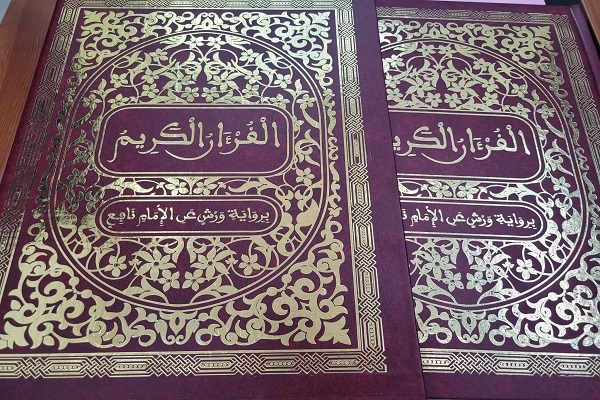 الْقُرْءَانُ الْكَرِيمُ
بِرِوَايَةِ وَرْشٍ عَنِ الْإِمَامِ نَافِعٍ
الْقُرْءَانُ الْكَرِيمُ
بِرِوَايَةِ وَرْشٍ عَنِ الْإِمَامِ